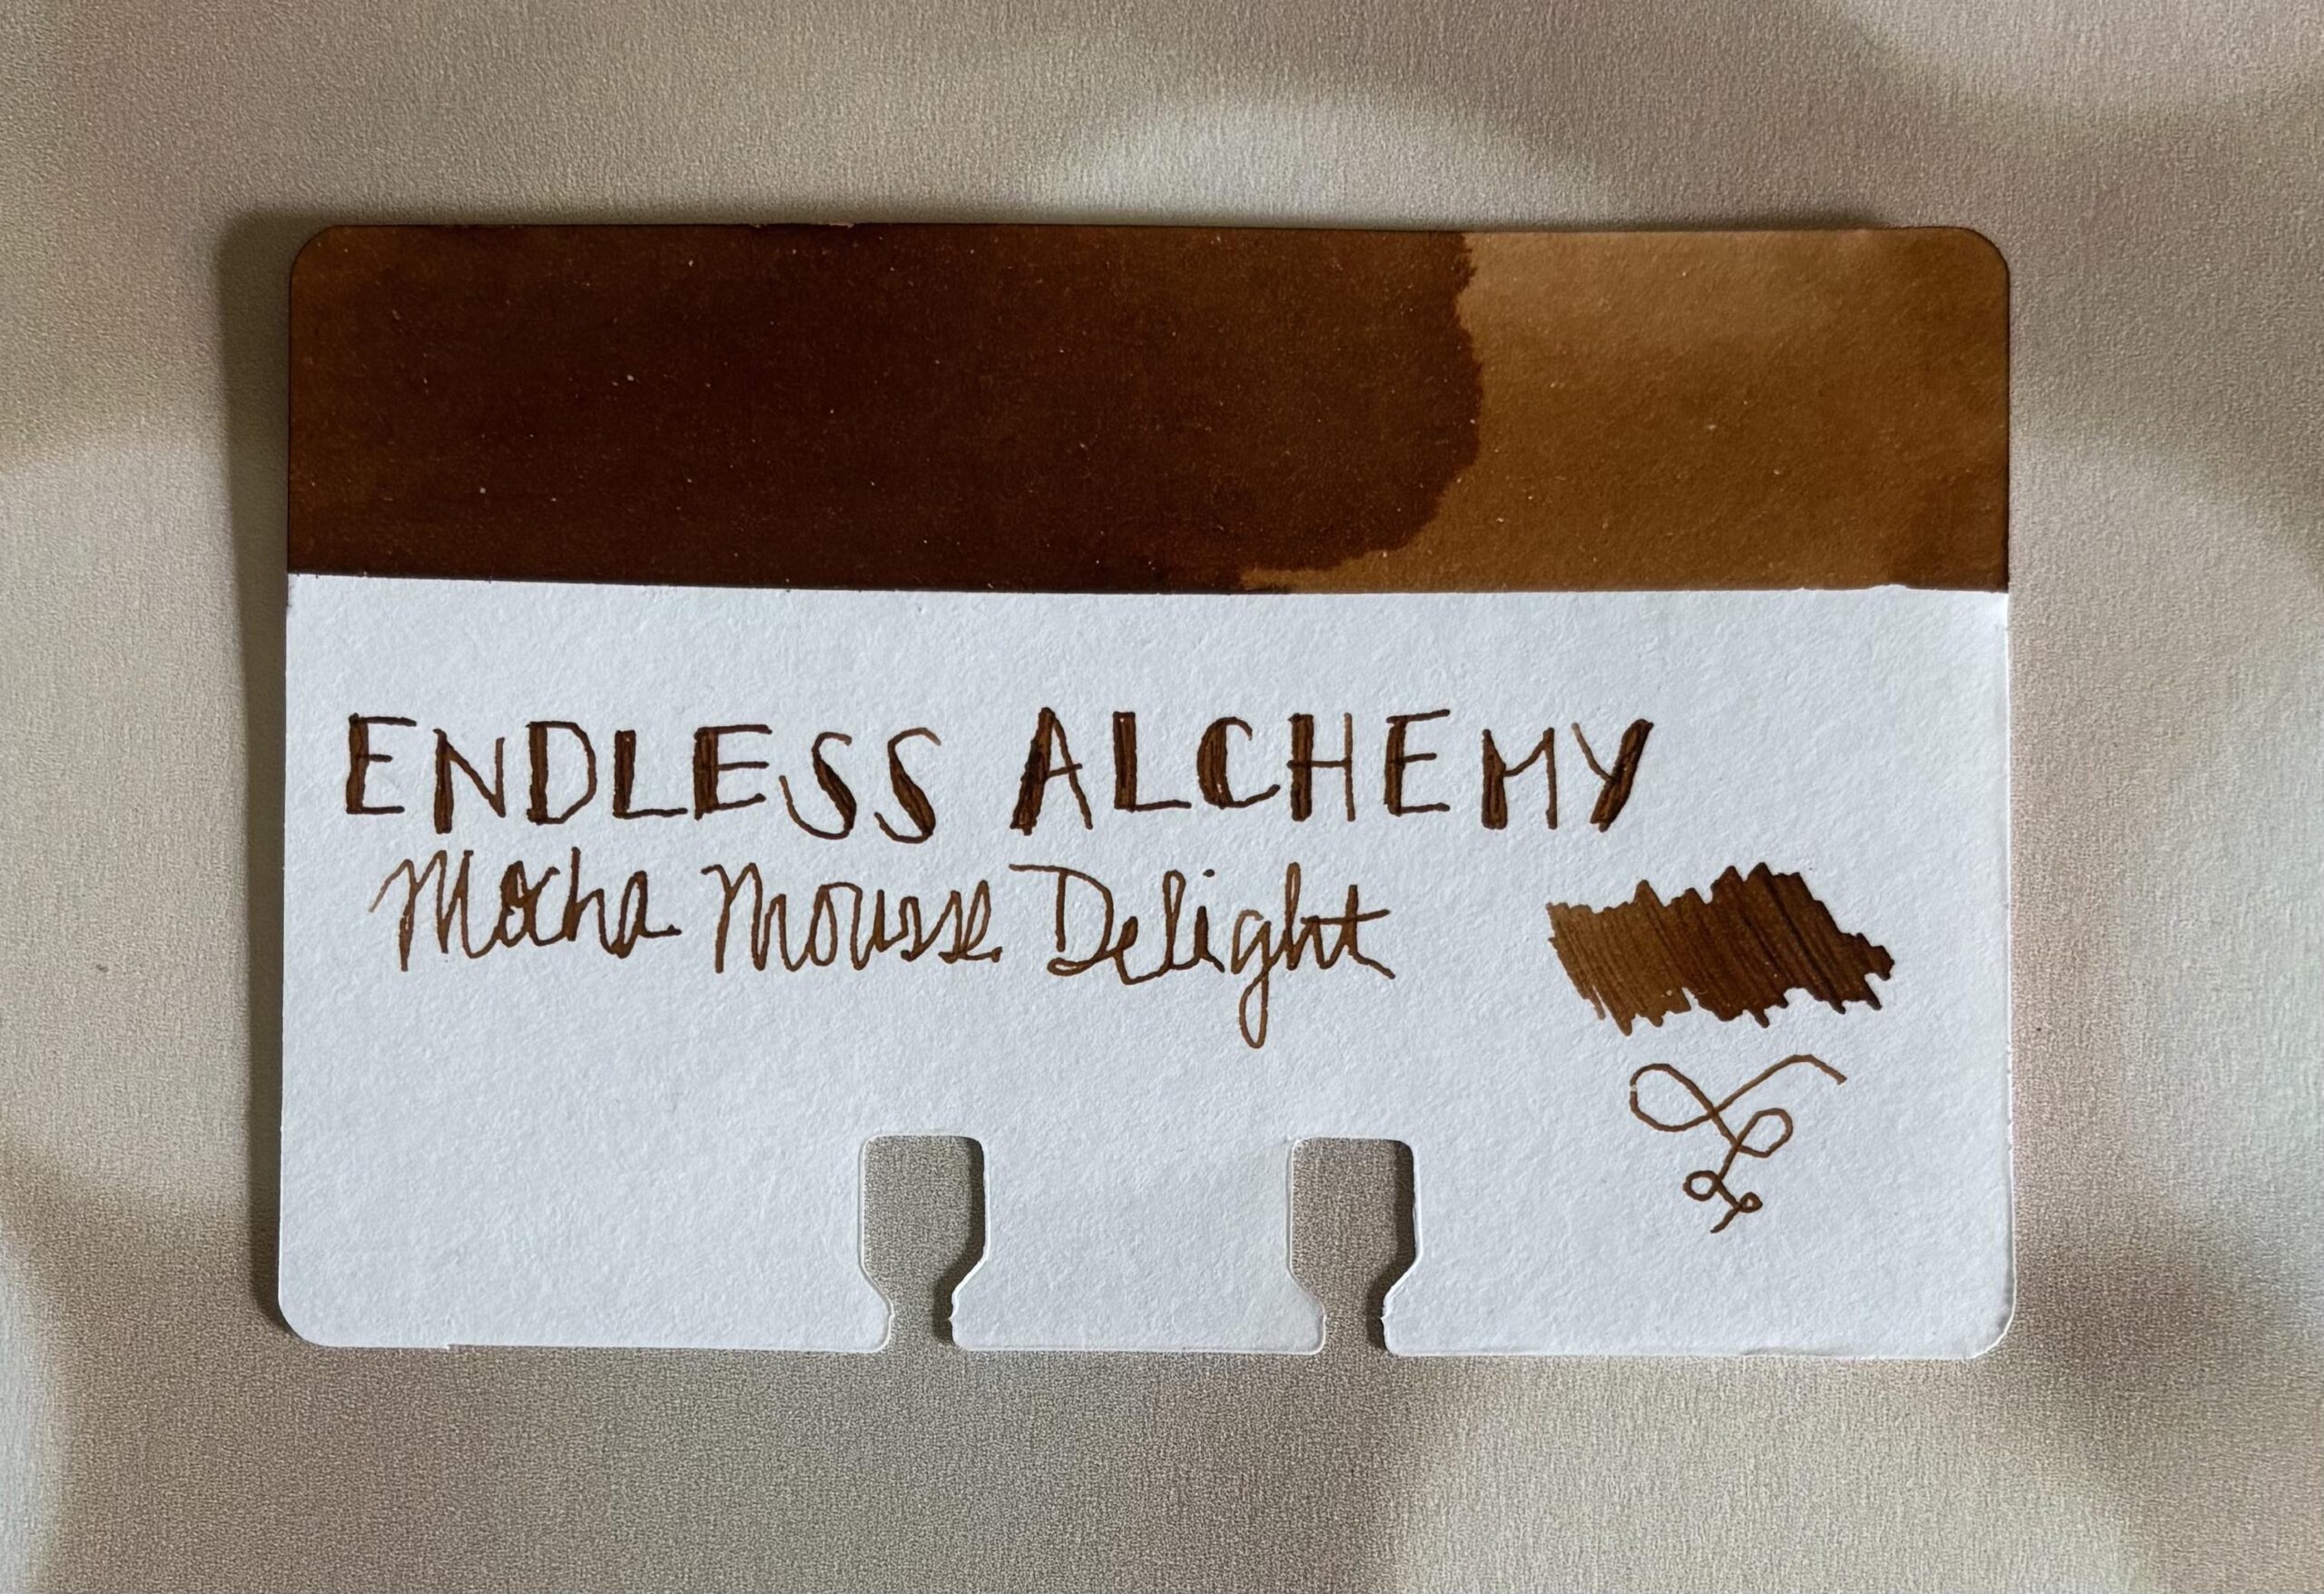 ENDLESS ALCHEMY
Mocha Mousse Delight